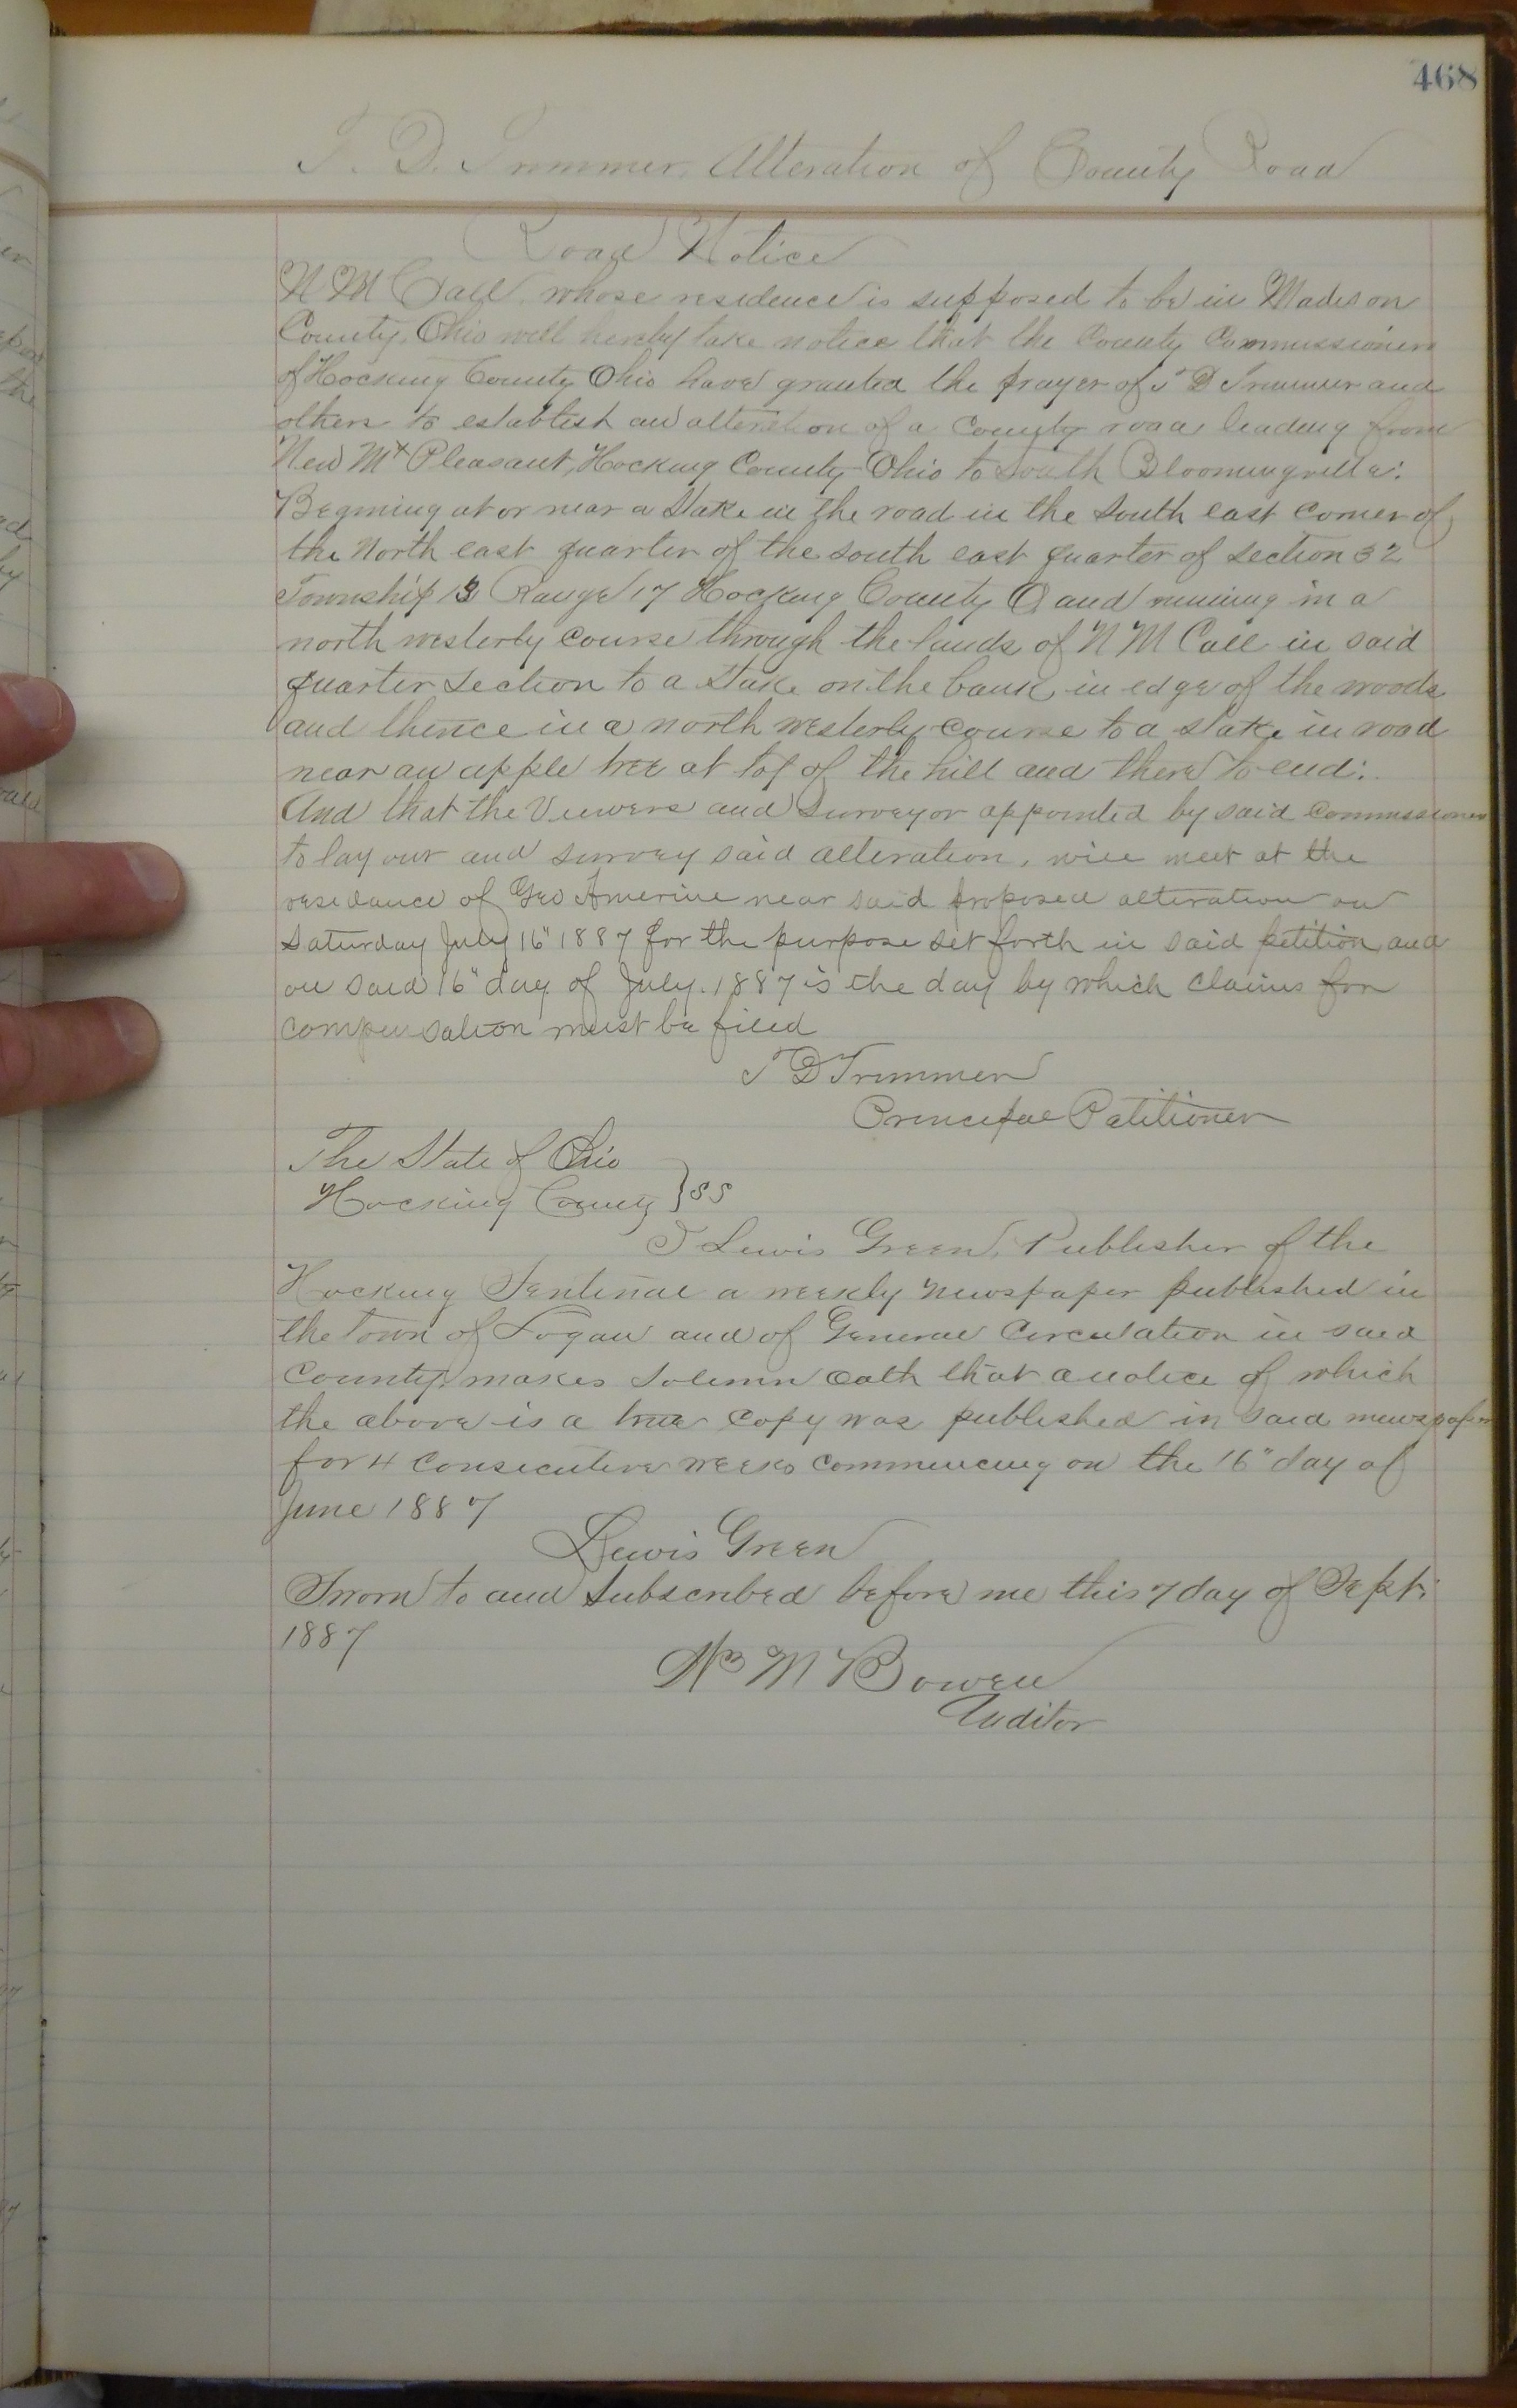 468
T. D. Trimmer, Alteration of County Road
Road Notice
N M Call, whose residence is supposed to be in Madison
County, Ohio will hereby take notice that the County Commissioners
of Hocking County Ohio have granted the prayer of T D Trimmer and
others to establish an alteration of a County road leading from
New Mt Pleasant, Hocking County Ohio to South Bloomingville:
Begining at or near a Stake in the road in the South east corner of
the North east quarter of the south east quarter of Section 32
Township 13 Range 17 Hocking County O and running in a
north westerly course through the lands of N M Call in said
quarter section to a stake on the bank in edge of the woods
and thence in a north westerly course to a stake in road
near an apple tree at top of the hill and there to end:
And that the Viewers and Surveyor appointed by said Commissioners
to lay out and survey said alteration, will meet at the
residance of Geo Amerine near said proposed alteration on
Saturday July 16" 1887 for the purpose set forth in said petition, and
on said 16" day of July. 1887 is the day by which claims for
compensation must be filed
T D Trimmer
Principal Petitioner
The State of Ohio
Hocking County } SS
I Lewis Green, Publisher of the
Hocking Sentinal a weekly newspaper published in
the Town of Logan and of General Circulation in said
County, makes Solemn Oath that a notice of which
the above is a true copy was published in said newspaper
for 4 consecutive weeks commencing on the 16" day of
June 1887
Lewis Green
Sworn to and Subscribed before me this 7 day of Sept.
1887
M Bowen
Auditor